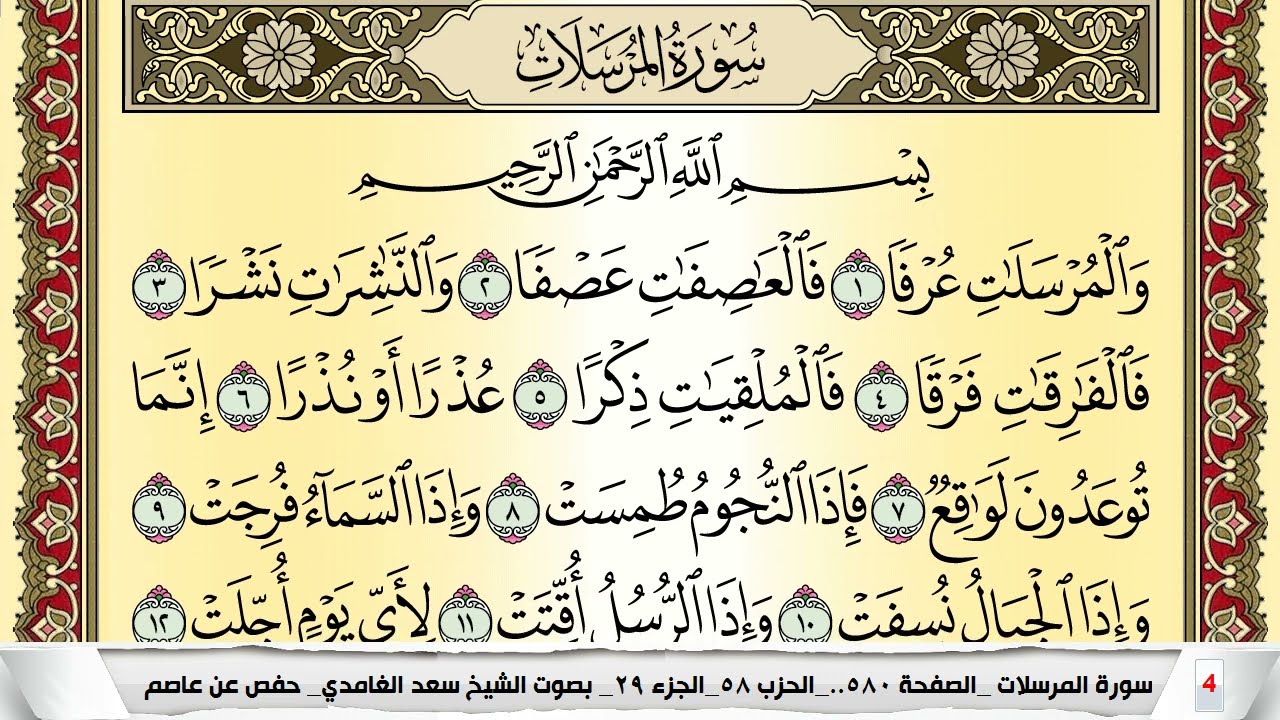 سُورَةُ المُرْسَلَات
بِسْمِ ٱللَّهِ ٱلرَّحْمَٰنِ ٱلرَّحِيمِ
وَٱلْمُرْسَلَٰتِ عُرْفًا ١ فَٱلْعَٰصِفَٰتِ عَصْفًا ٢ وَٱلنَّٰشِرَٰتِ نَشْرًا ٣
فَٱلْفَٰرِقَٰتِ فَرْقًا ٤ فَٱلْمُلْقِيَٰتِ ذِكْرًا ٥ عُذْرًا أَوْ نُذْرًا ٦ إِنَّمَا
تُوعَدُونَ لَوَٰقِعٌ ٧ فَإِذَا ٱلنُّجُومُ طُمِسَتْ ٨ وَإِذَا ٱلسَّمَآءُ فُرِجَتْ ٩
وَإِذَا ٱلْجِبَالُ نُسِفَتْ ١٠ وَإِذَا ٱلرُّسُلُ أُقِّتَتْ ١١ لِأَىِّ يَوْمٍ أُجِّلَتْ ١٢
4 سورة المرسلات _الصفحة ٥٨٠.._الحزب ٥٨_الجزء ٢٩_ بصوت الشيخ سعد الغامدي_ حفص عن عاصم